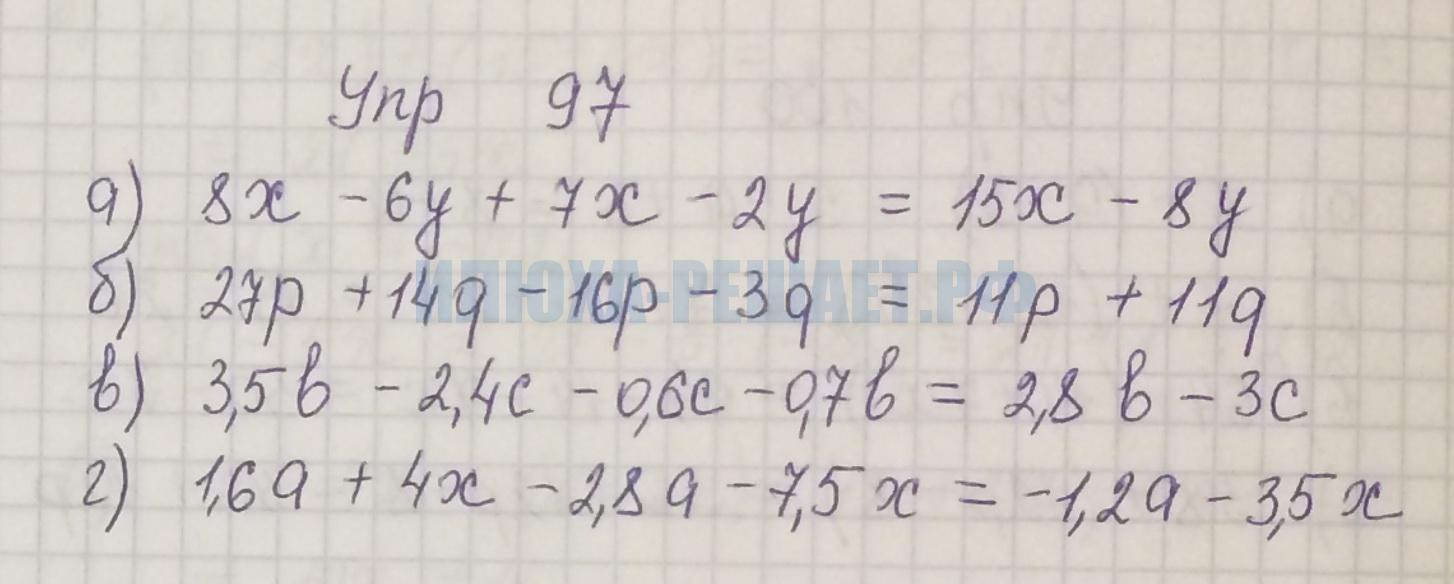 Упр 97
а) 8x - 6y + 7x - 2y = 15x - 8y
ИЛЮХА-РЕШАЕТ.РФ
б) 27p + 14q - 16p - 3q = 11p + 11q
в) 3,5b - 2,4c - 0,6c - 0,7b = 2,8 b - 3c
г) 1,6a + 4x - 2,8a - 7,5x = -1,2a - 3,5x